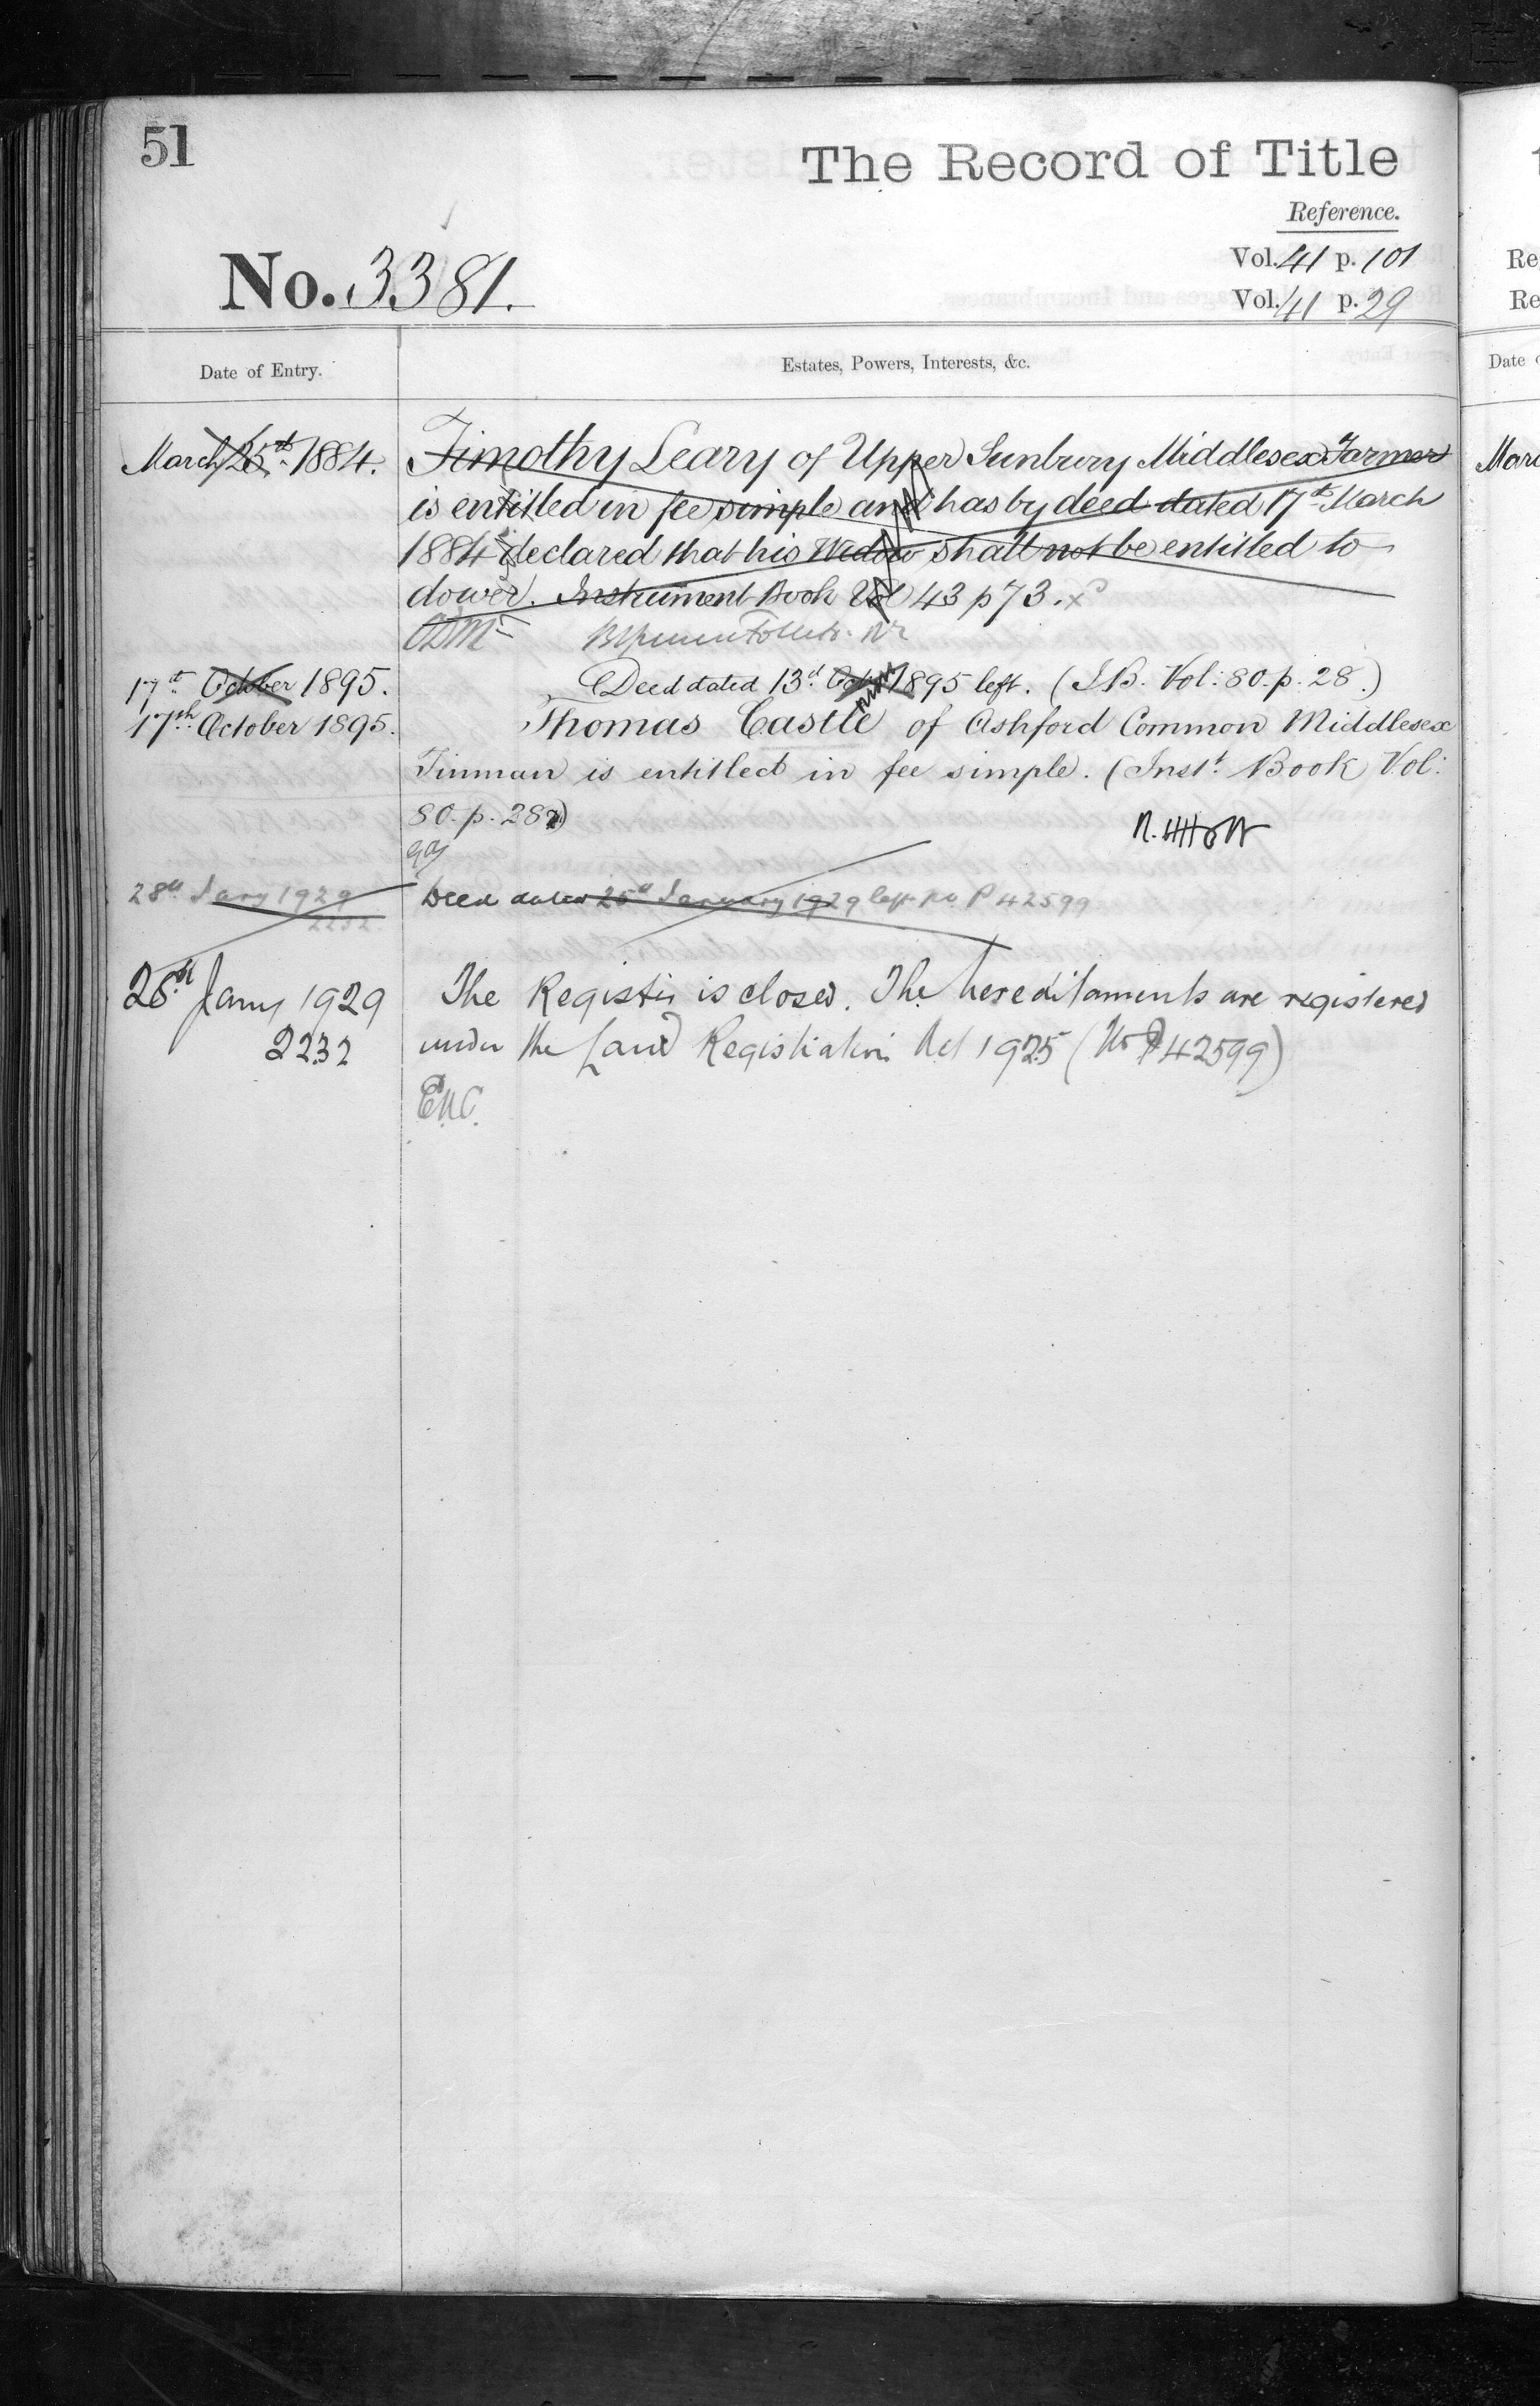 51
The Record of Title
Reference.
Vol. 41 p. 101
No. 3381.
Vol. 41 p. 29
Date of Entry.
Estates, Powers, Interests, &c.
March 25th 1884.
Timothy Leary of Upper Sunbury Middlesex Farmer
is entitled in fee simple and has by deed dated 17th March
1884 declared that his Widow shall not be entitled to
dower. Instrument Book Vol 43 p 73.
17th October 1895.
Deed dated 13th Oct 1895 left. (I.B. Vol: 80. p. 28.)
17th October 1895.
Thomas Castle of Ashford Common Middlesex
Tinman is entitled in fee simple. (Inst. Book Vol:
80. p. 28)
28th Jany 1929
2232
Deed dated 25th January 1929 left No P 42599
28th Jany 1929
The Register is closed. The hereditaments are registered
2232
under the Land Registration Act 1925 (No P 42599)
Re
Re
Date
Marc